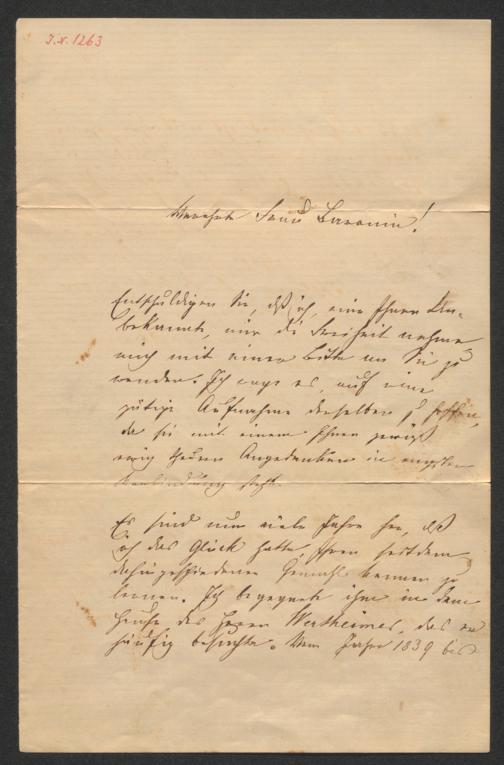 J.N. 1263
Verehrte Frau Baronin!
Entschuldigen Sie, daß ich, eine Ihnen Un-
bekannte, mir die Freiheit nehme
mich mit einer Bitte an Sie zu
wenden. Ich wage es, auf eine
gütige Aufnahme derselben zu hoffen,
da sie mit einem Ihnen gewiß
ewig theuren Angedenken in engster
Verbindung steht.
Es sind nun viele Jahre her, daß
ich das Glück hatte, Ihren seitdem
dahingeschiedenen Gemahl kennen zu
lernen. Ich begegnete ihm in dem
Hause des Herrn Wertheimer, das er
häufig besuchte. Vom Jahre 1839 bis